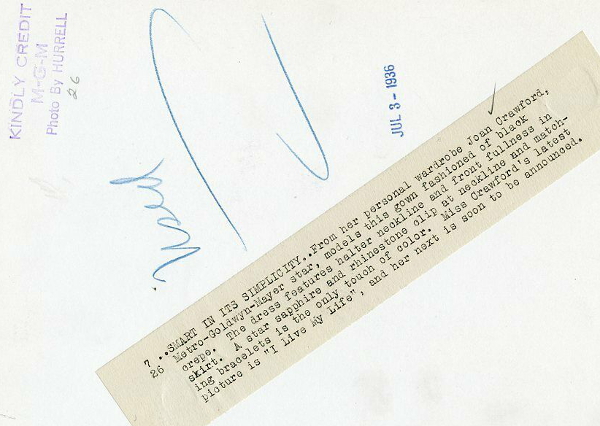 KINDLY CREDIT
M-G-M
Photo By HURRELL
26
Used
JUL 3 - 1936
7 ..SMART IN ITS SIMPLICITY..From her personal wardrobe Joan Crawford,
26 Metro-Goldwyn-Mayer star, models this gown fashioned of black
crepe. The dress features halter neckline and front fullness in
skirt. A star sapphire and rhinestone clip at neckline and match-
ing bracelets is the only touch of color. Miss Crawford's latest
picture is "I Live My Life", and her next is soon to be announced.